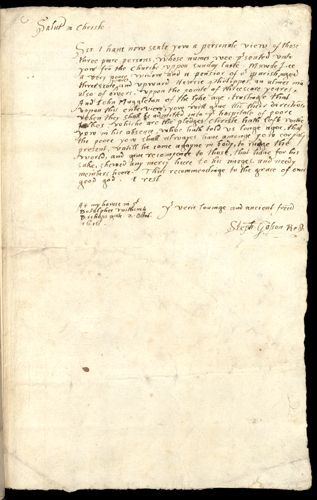 Salut in Christo
Sir I have now sente you a personale view of those
three pore persons, whose names were presented unto
you for the Churche uppon Sunday laste. Mawde Lee
a very poore and a pensioner of ye parish, aged
threescore, and upward. Henrie Phillipps, an almes man
also of owers, uppon the pointe of threescore yeares.
And John Muggleton of the lyke age, trustinge that
uppon this enterview, you will give them directions
when they shall be admitted into ye hospitals of poore
which are the pledges Christe hath left with
you in his absence, whoe hath told us longe agoe, that
the poore you shall allwayes have amonge you
present, untill he come agayne in body, to iudge the
world, and give recompence to those, that have for his
sake, shewed any mercy heere to his and needy
members heere. Thus recommendinge to the grace of our
good god. I rest
At my howse in St
Buttolphes without
Bishops gate 2. Octob.
1616.
yr verie lovinge and ancient frend
Steph Gosson Rect.